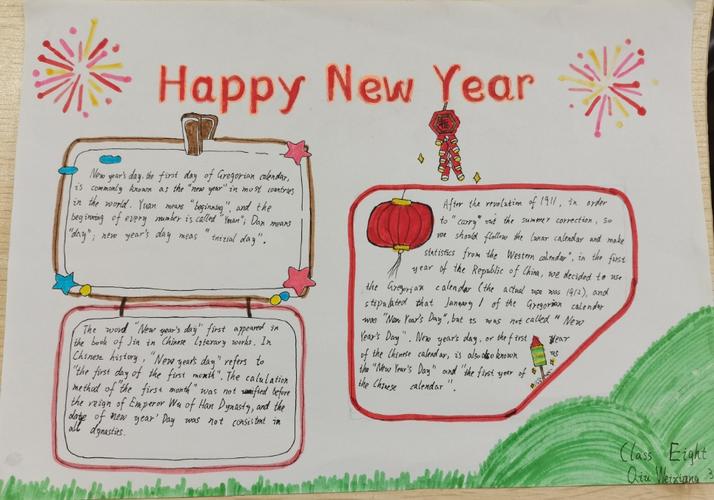 Happy New Year
New year's day, the first day of Gregorian calendar,
is commonly known as the "new year" in most countries
in the world. Yuan means "beginning", and the
beginning of every number is called "Yuan"; Dan means
"day"; new year's day meas "initial day".
The word "New year's day" first appeared in
the book of Jin in Chinese literary works. In
Chinese history, "New year's day" refers to
"the first day of the first month". The calculation
method of "the first month" was not unified before
the reign of Emperor Wu of Han Dynasty, and the
date of new year' Day was not consistent in
all dynasties.
福
After the revolution of 1911, in order
to "carry" out the summer correction, so
we should follow the lunar calendar and make
statistics from the Western calendar", in the first
year of the Republic of China, we decided to use
the Gregorian calendar (the actual use was 1912), and
stipulated that January 1 of the Gregorian calendar
was "New Year's Day", but is was not called "New
Year's Day". New year's day, or the first year
of the Chinese calendar, is also known as
the "New Year's Day" and "the first year of
the Chinese calendar".
Class Eight
Qiu Weixiang